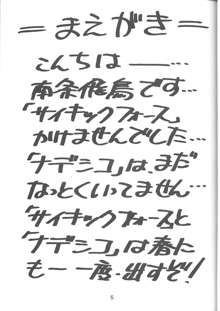 =まえがき=
こんちは――
南条飛鳥です…
「サイキックフォース」
かけませんでした…
「ナデシコ」は、まだ
なっとくいってません…
「サイキックフォース」と
「ナデシコ」は春に
も一一度、出すぞ!
5